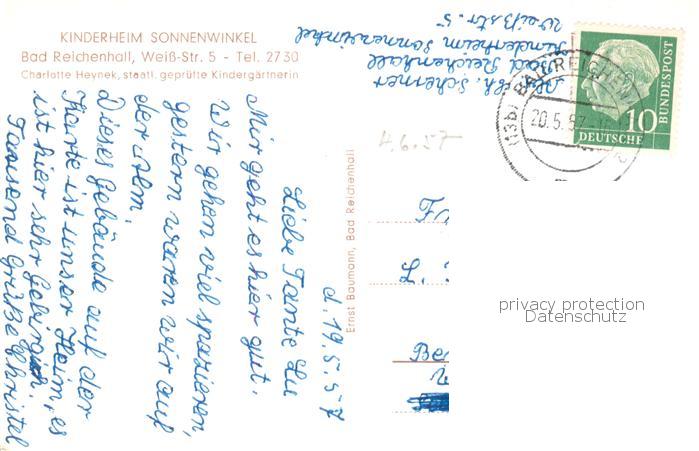 KINDERHEIM SONNENWINKEL
Bad Reichenhall, Weiß-Str. 5 - Tel. 2730
Charlotte Heynek, staatl. geprüfte Kindergärtnerin
d. 19.5.57
Liebe Tante Lu
Mir geht es hier gut.
Wir gehen viel spazieren,
gestern waren wir auf
der Alm.
Dieses Gebäude auf der
Karte ist unser Heim, es
ist hier sehr gebirgich.
Tausend Grüße Christel
Ernst Baumann, Bad Reichenhall
Abs. Ch. Scherner
Bad Reichenhall
Kinderheim Sonnenwinkel
Weißstr. 5
4.6.57
(13b) BAD REICH
20.5.57
10
DEUTSCHE
BUNDESPOST
L.
Be
privacy protection
Datenschutz